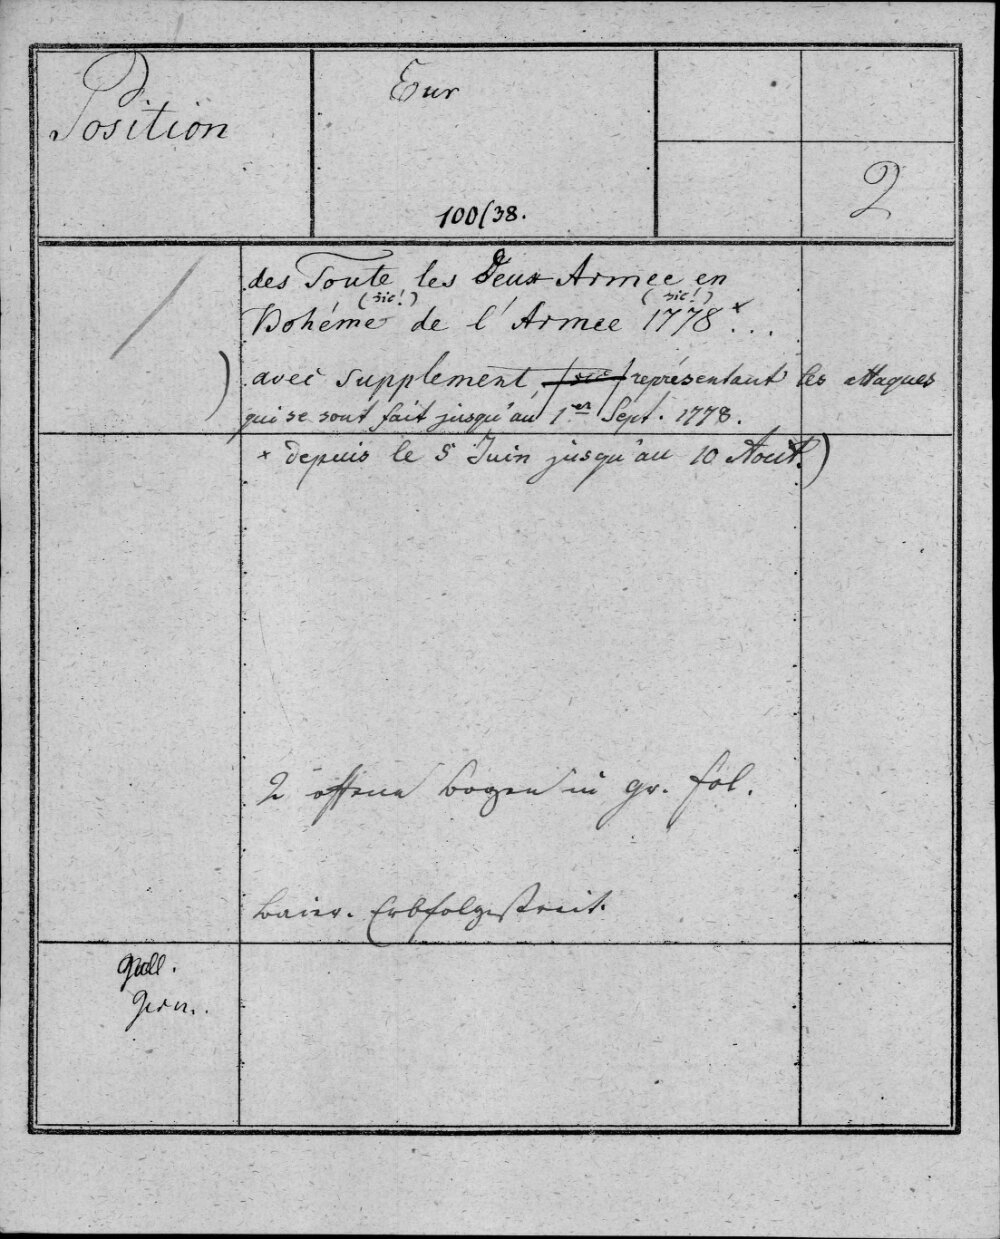 Position
Eur
100/38.
2
des Toute les Deux Armee en
(sic!) (sic!)
Bohéme de l'Armee 1778 x...
) avec supplement (sic) représentant les attaques
qui se sont fait jusqu'au 1er Sept. 1778.
x depuis le 5 Juin jusqu'au 10 Aout.)
2 offene Bogen in gr. fol.
baier. Erbfolgestreit.